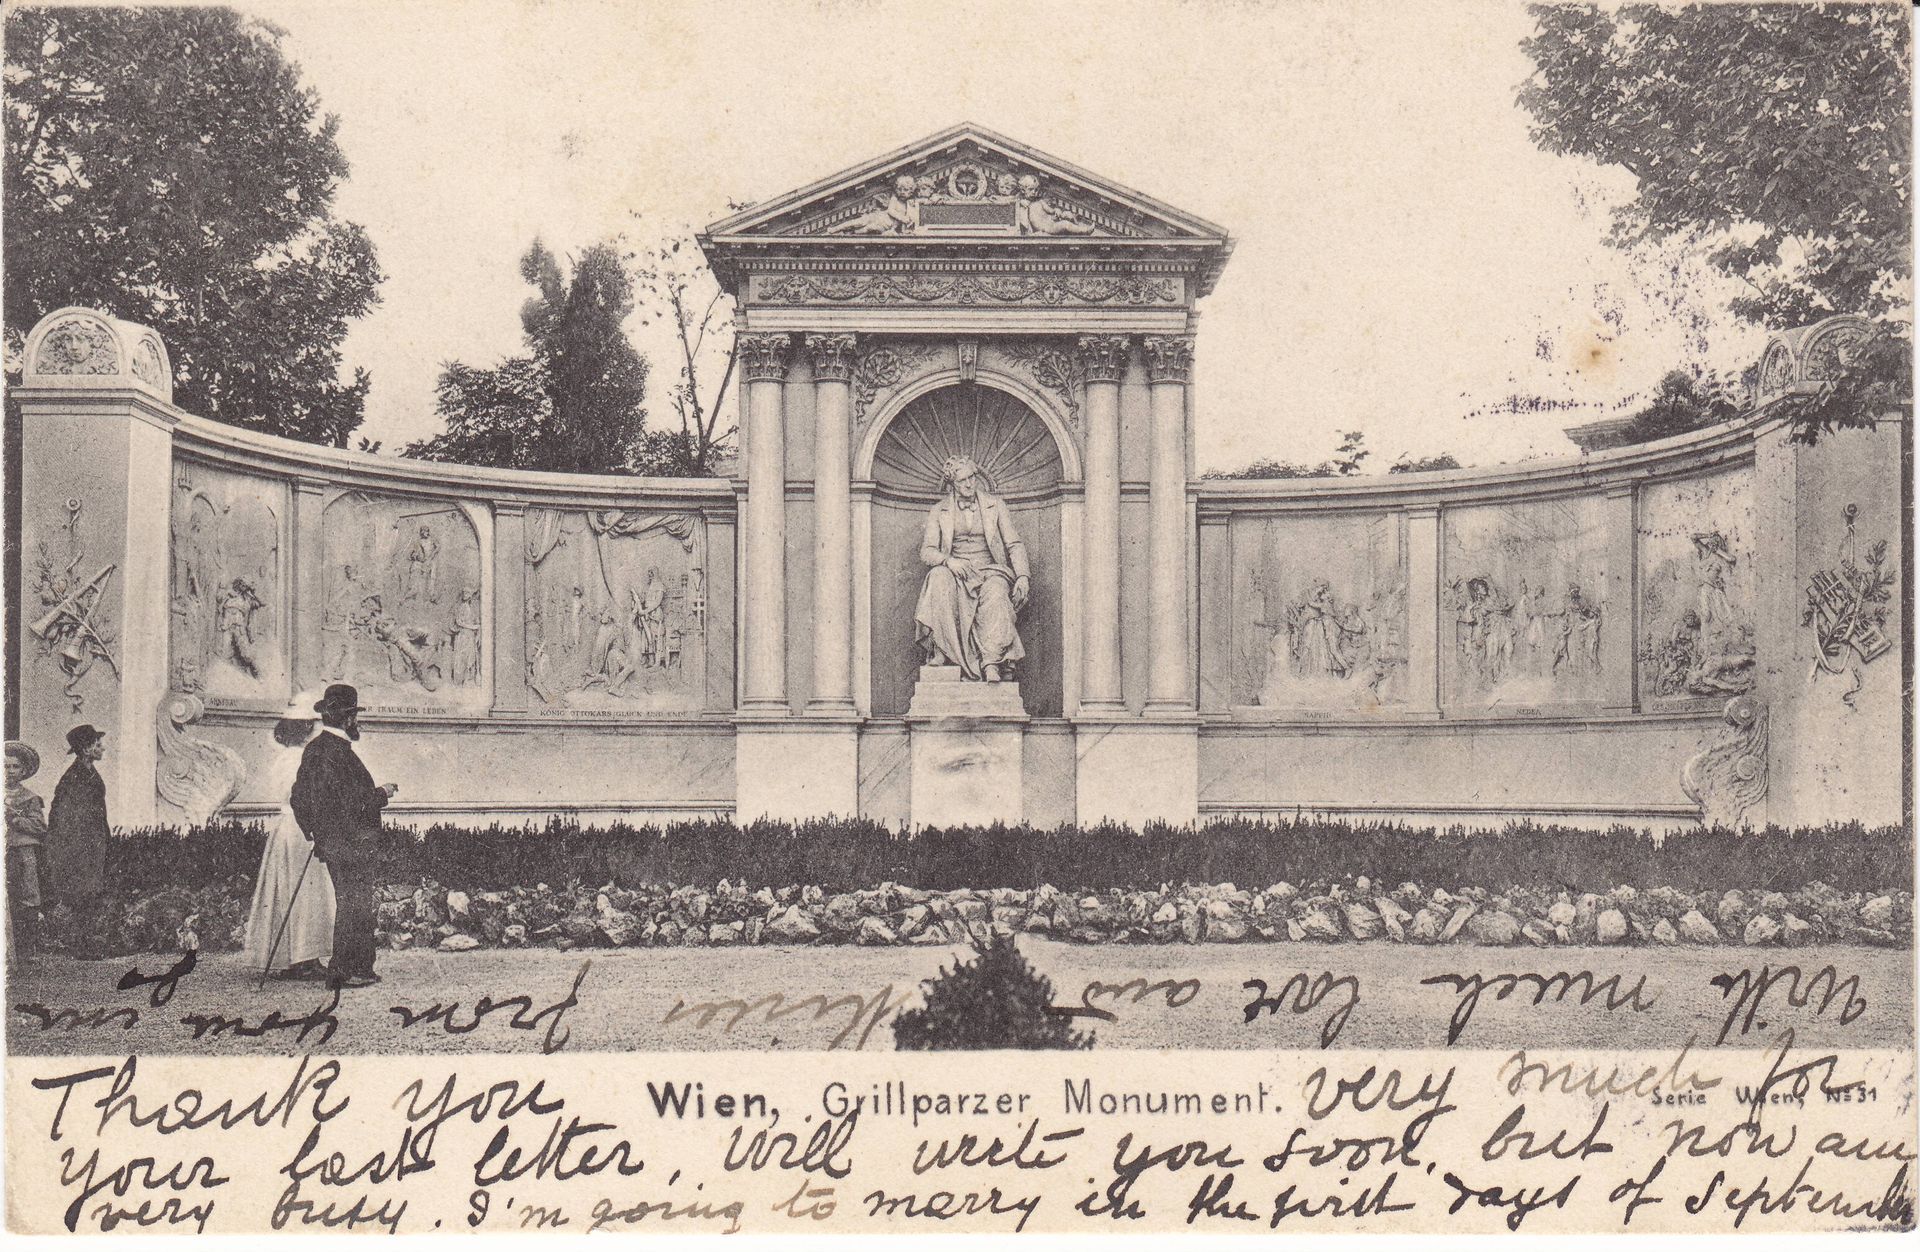 AHNFRAU
TRAUM EIN LEBEN
KÖNIG OTTOKARS GLÜCK UND ENDE
SAPPHO
MEDEA
With much love and Kisses from your
Thank you Wien, Grillparzer Monument. very much for Serie Wien, No 31
your last letter, Will write you soon, but now am
very busy. I'm going to marry in the first days of September